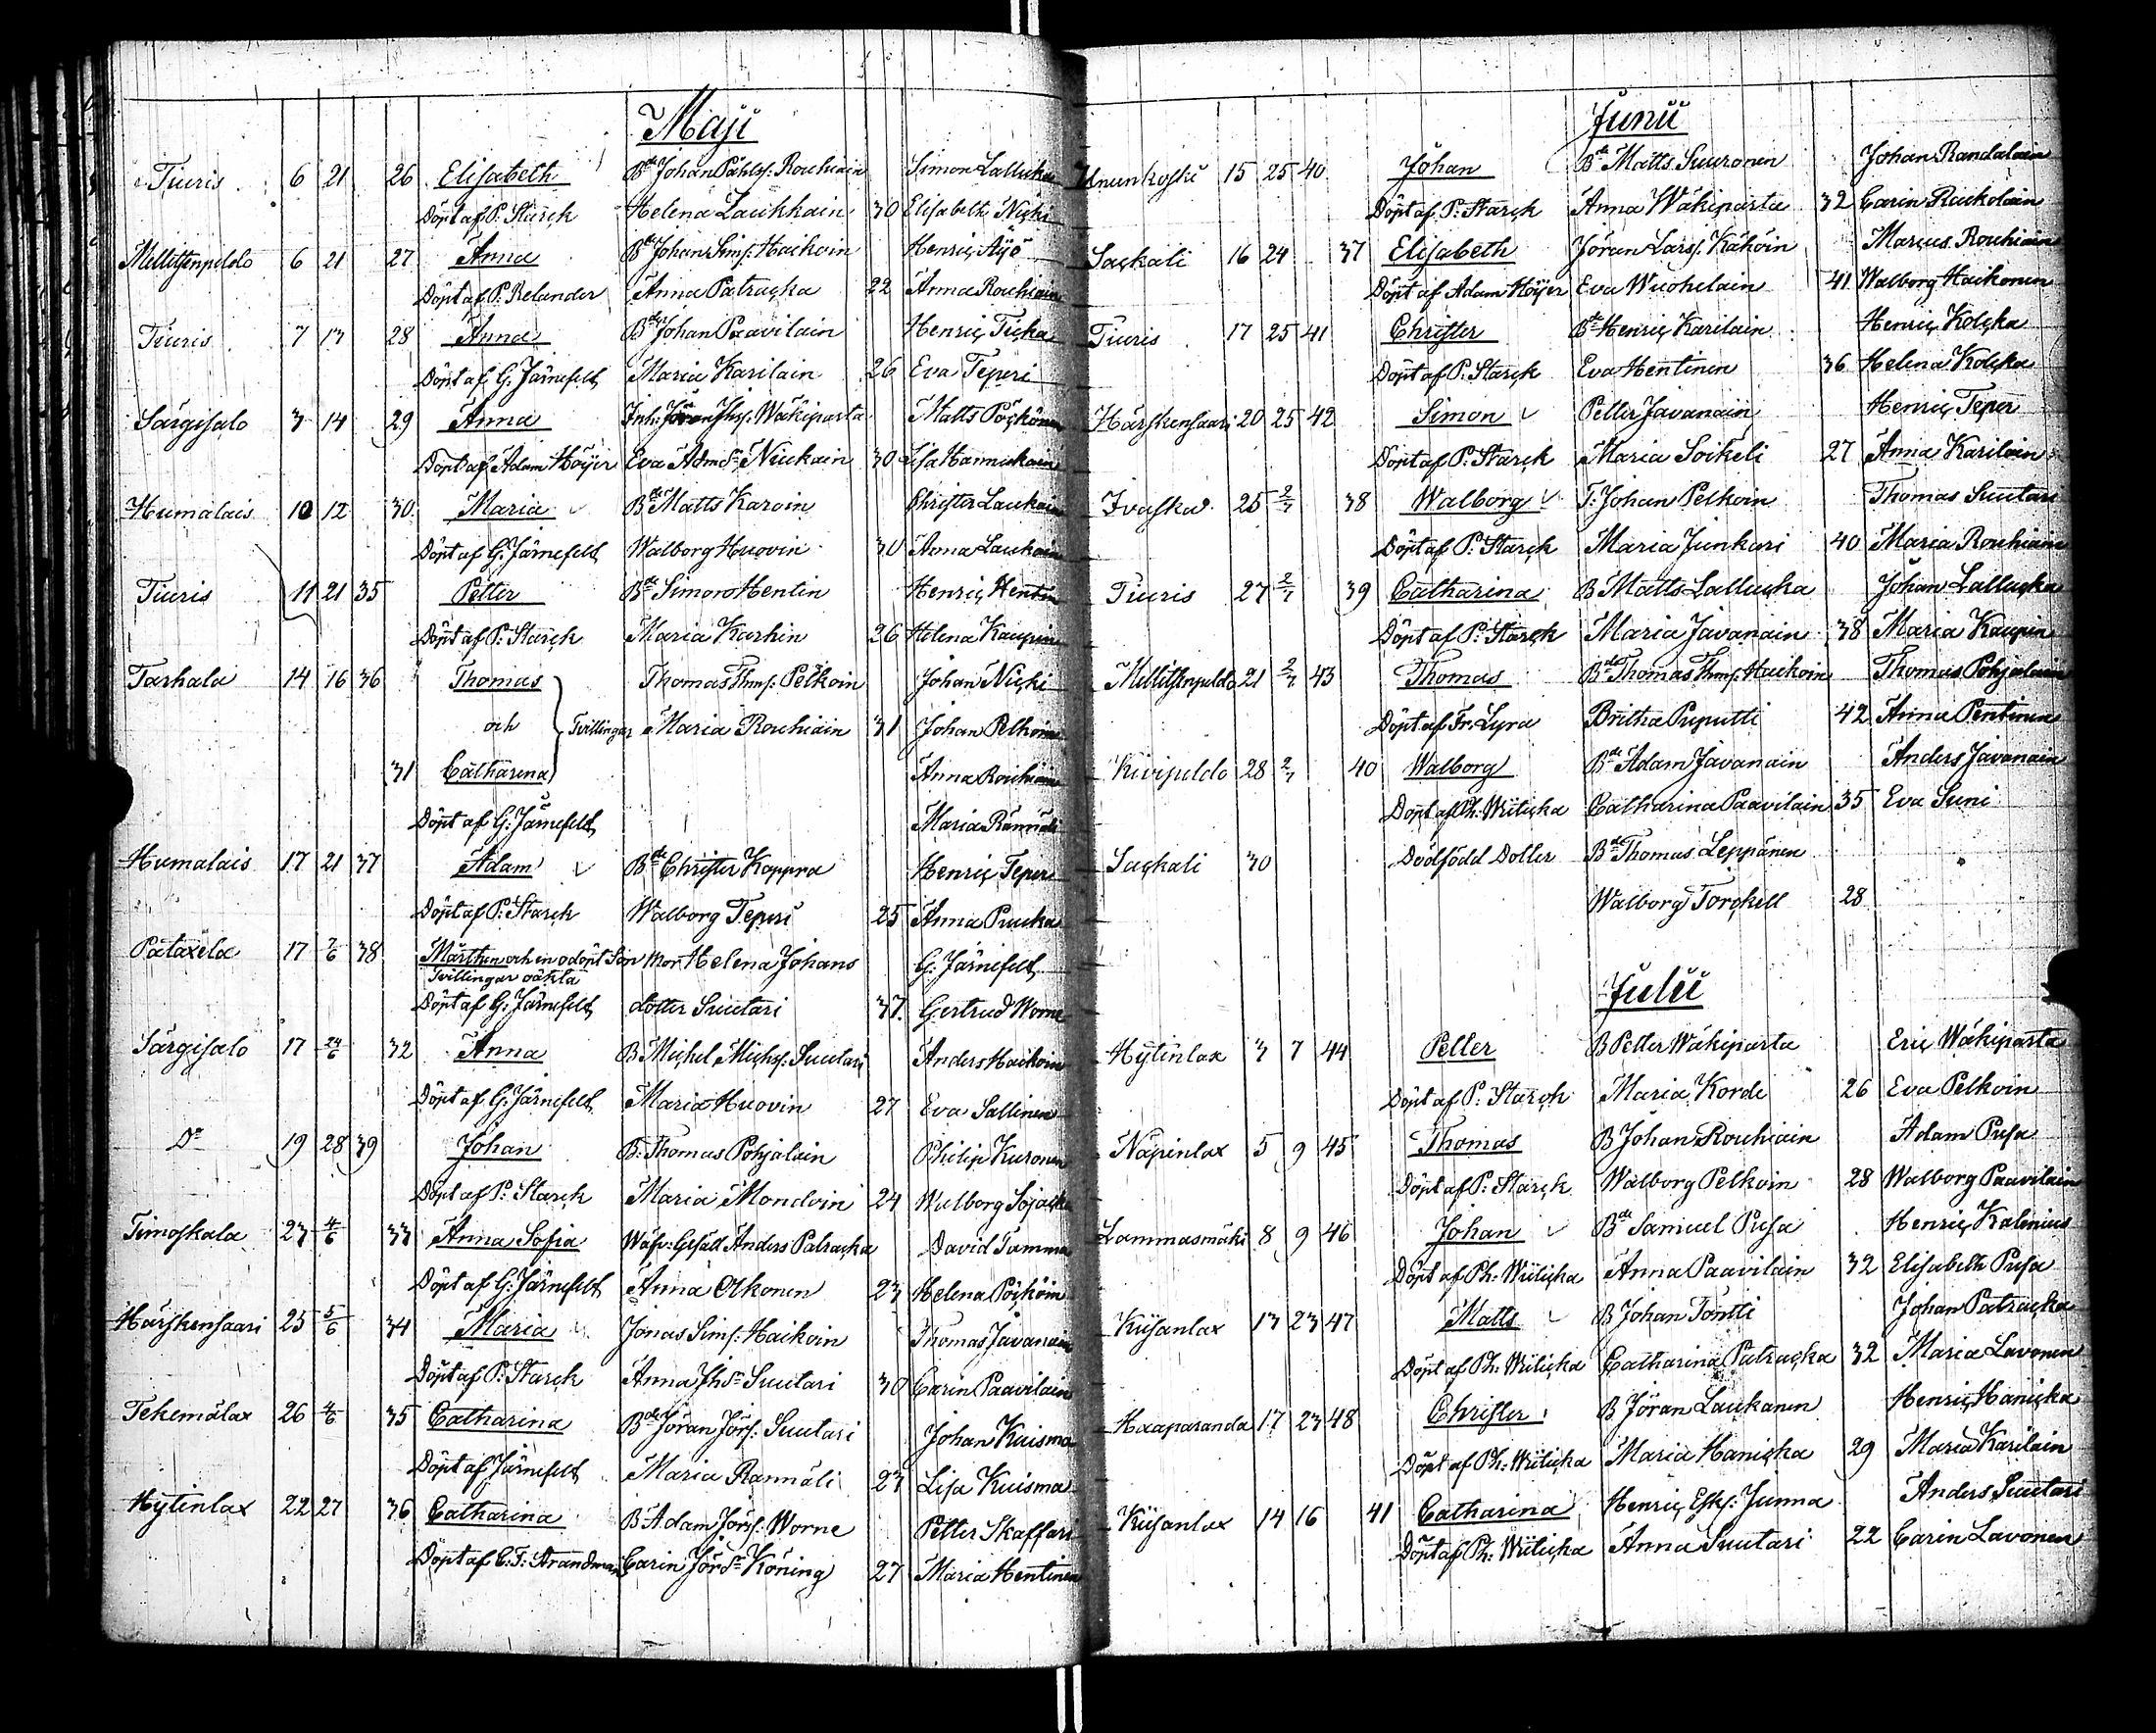 Maji
Tiuris 6 21 26 Elisabeth Bde Johan Påhls: Rouhiain Simon Lallucka
Döpt af P: Starck Helena Laukkain 30 Elisabeth Nicki
Millitsenpeldo 6 21 27 Anna Bde Johan Sims: Haikoin Henric Äyö
Döpt af P. Relander Anna Patracka 22 Anna Rouhiain
Tiuris 7 13 28 Anna Bde Johan Paavilain Henric Ticka
Döpt af G: Järnefelt Maria Karilain 26 Eva Teperi
Särgisalo 3 14 29 Anna Inh: Jöran Jhs: Wäkiparta Matts Pöckönen
Döpt af Adam Höijer Eva Admsdr Niukain 30 Lisa Hannukain
Humalais 10 12 30 Maria Bde Matts Karvin Christer Laukain
Döpt af G: Järnefelt Walborg Huovin 30 Anna Laukain
Tiuris 11 21 35 Petter Bde Simon Hentin Henric Hentin
Döpt af P: Starck Maria Karhin 26 Helena Kaupin
Tarhala 14 16 36 Thomas Thomas Thms: Pelkoin Johan Nicki
och Tvillingar Maria Rouhiain 31 Johan Pelkoin
31 Catharina Anna Rouhiain
Döpt af G: Järnefelt Maria Rännäli
Humalais 17 21 37 Adam Bde Christer Kappra Henric Teper
Döpt af P: Starck Walborg Teperi 25 Anna Prucka
Pataxela 17 7/6 38 Mårthen och en odöpt Son Mor Helena Johans G: Järnefelt
Tvillingar oäkta
Döpt af G: Järnefelt dotter Suutari 37. Gertrud Worne
Särgisalo 17 24/6 32 Anna B Michel Michs: Suutari Anders Haikoin
Döpt af G: Järnefelt Maria Huovin 27 Eva Sallinen
Do 19 28 39 Johan B: Thomas Pohjalain Philip Kuronen
Döpt af P: Starck Maria Mondoin 24 Walborg Sojacka
Timoskala 23 4/6 33 Anna Sofia Wäfv: Gesäll Anders Patracka David Tamma
Döpt af G: Järnefelt Anna Olkonen 23 Helena Pöjköin
Härskensaari 25 5/6 34 Maria Jonas Sims: Haikoin Thomas Javanain
Döpt af P: Starck Anna Jhsdr Suutari 30 Carin Paavilain
Tekemälax 26 4/6 35 Catharina Bde Jöran Jörs: Suutari Johan Kuisma
Döpt af Järnefelt Maria Rannali 23 Lisa Kuisma
Hytinlax 22 27 36 Catharina B Adam Jörs: Worne Petter Skaffari
Döpt af C: F: Strandman Carin Jörsdr Köning 27 Maria Hentinen
Junii
Ununkoski 15 25 40 Johan Bde Matts Suuronen Johan Randalain
Döpt af P: Starck Anna Wäkiparta 32 Carin Raukolain
Sackali 16 24 37 Elisabeth Jöran Lars: Kähöin Marcus Rouhiain
Döpt af Adam Höijer Eva Wuohelain 41 Walborg Haikonen
Tiuris 17 25 41 Christer Bde Henric Karilain Henric Kolcka
Döpt af P: Starck Eva Hentinen 36 Helena Kolcka
Härskensaari 20 25 42 Simon Petter Javanain Henric Teper
Döpt af P: Starck Maria Soikeli 27 Anna Karilain
Ivaska 25 2/7 38 Walborg T: Johan Pelkoin Thomas Suutari
Döpt af P: Starck Maria Junkari 40 Maria Rouhiain
Tiuris 27 2/7 39 Catharina B Matts Lallucka Johan Lallucka
Döpt af P: Starck Maria Javanain 38 Maria Kaupin
Millitsenpeldo 21 2/7 43 Thomas Bde Thomas Thms: Haikoin Thomas Pohjalain
Döpt af Fr: Lyra Britha Puputti 42 Anna Pentinen
Kivipeldo 28 2/7 40 Walborg Bde Adam Javanain Anders Javanain
Döpt af Ph: Wiilicka Catharina Paavilain 35 Eva Suni
Sackali 30 Dödfödd Dotter Bde Thomas Leppänen
Walborg Torckell 28
Julii
Hytinlax 3 7 44 Petter B Petter Wäkiparta Eric Wäkiparta
Döpt af P: Starck Maria Korde 26 Eva Pelkoin
Näpinlax 5 9 45 Thomas B Johan Rouhiain Adam Pusa
Döpt af P: Starck Walborg Pelkoin 28 Walborg Paavilain
Lammasmäki 8 9 46 Johan Bde Samuel Pusa Henric Kalenius
Döpt af Ph: Wiilicka Anna Paavilain 32 Elisabeth Pusa
Kiisanlax 13 23 47 Matts B Johan Tontti Johan Patracka
Döpt af Ph: Wiilicka Catharina Patracka 32 Maria Lavonen
Haaparanda 17 23 48 Christer B Jöran Laukanen Henric Hanicka
Döpt af Ph: Wiilicka Maria Hanicka 29 Maria Karilain
Kiisanlax 14 16 41 Catharina Henric Esks: Junna Anders Suutari
Döpt af Ph: Wiilicka Anna Suutari 22 Carin Lavonen